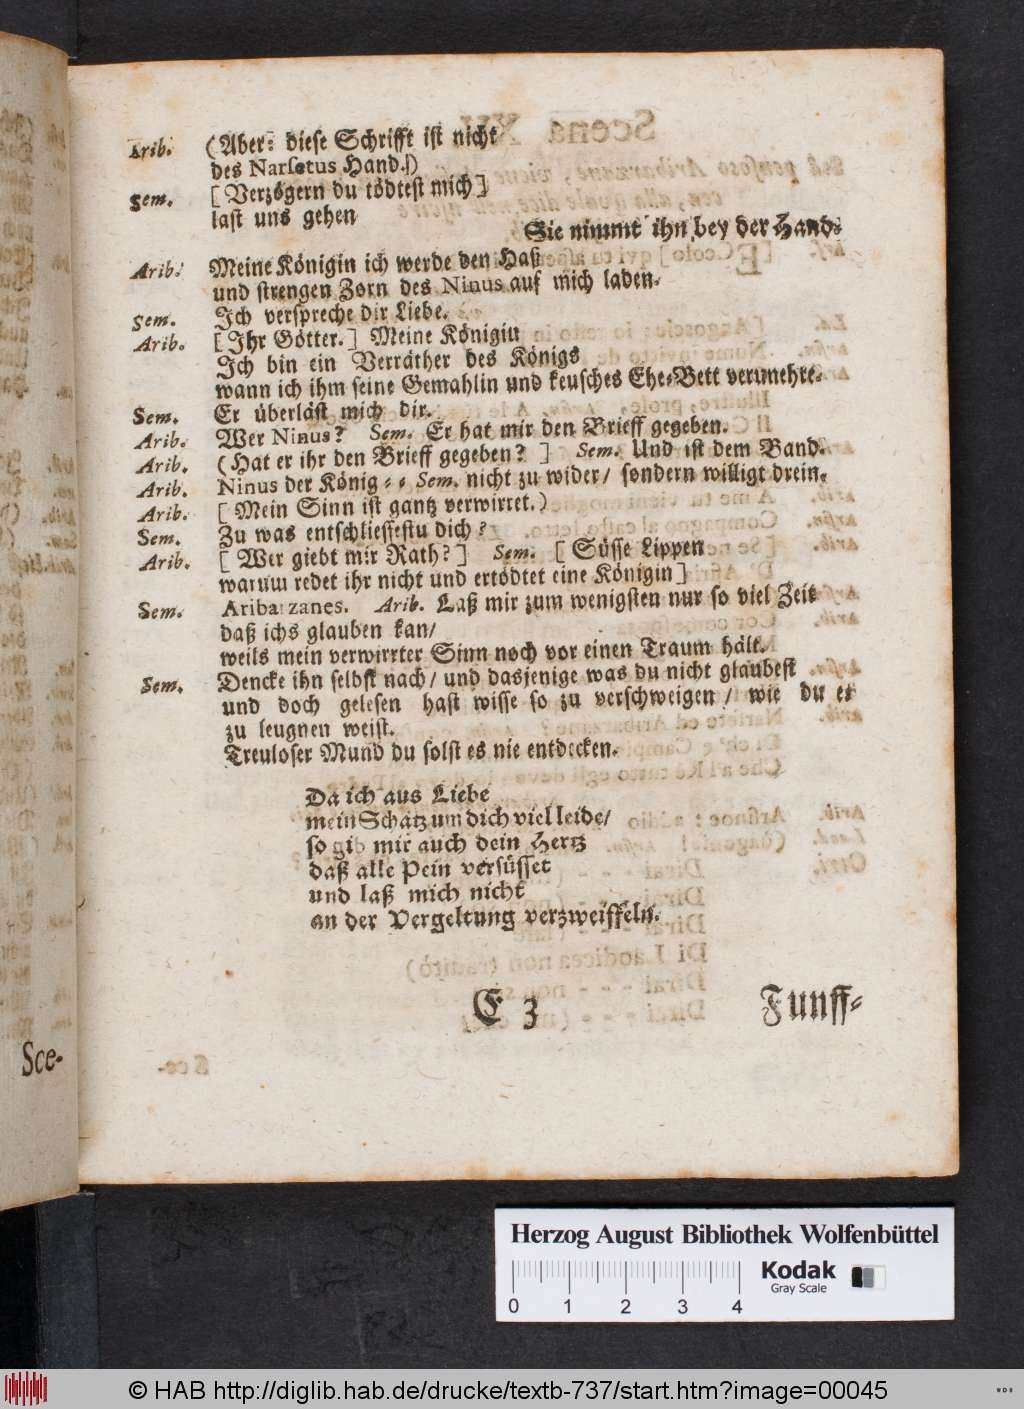 Arib. (Aber: diese Schrifft ist nicht
des Narsetus Hand.)
Sem. [ Verzögern du tödtest mich ]
last uns gehen
Sie nimmt ihn bey der Hand.
Arib. Meine Königin ich werde den Haß
und strengen Zorn des Ninus auf mich laden.
Sem. Ich verspreche dir Liebe.
Arib. [ Ihr Götter. ] Meine Königin
Ich bin ein Verräther des Königs
wann ich ihm seine Gemahlin und keusches Ehe-Bett verunehre.
Sem. Er überläst mich dir.
Arib. Wer Ninus? Sem. Er hat mir den Brieff gegeben.
Arib. (Hat er ihr den Brieff gegeben? ] Sem. Und ist dem Band.
Arib. Ninus der König - - Sem. nicht zu wider/ sondern willigt drein.
Arib. [ Mein Sinn ist gantz verwirret.)
Sem. Zu was entschliessestu dich?
Arib. [ Wer giebt mir Rath? ] Sem. [ Süsse Lippen
warum redet ihr nicht und ertödtet eine Königin ]
Sem. Aribarzanes. Arib. Laß mir zum wenigsten nur so viel Zeit
daß ichs glauben kan/
weils mein verwirrter Sinn noch vor einen Traum hält.
Sem. Dencke ihn selbst nach/ und dasjenige was du nicht glaubest
und doch gelesen hast wisse so zu verschweigen/ wie du es
zu leugnen weist.
Treuloser Mund du solst es nie entdecken.
Da ich aus Liebe
mein Schatz um dich viel leide/
so gib mir auch dein Hertz
daß alle Pein versüsset
und laß mich nicht
an der Vergeltung verzweiffeln.
E 3 Funff-
Sce-
Herzog August Bibliothek Wolfenbüttel
Kodak
Gray Scale
0 1 2 3 4
© HAB http://diglib.hab.de/drucke/textb-737/start.htm?image=00045